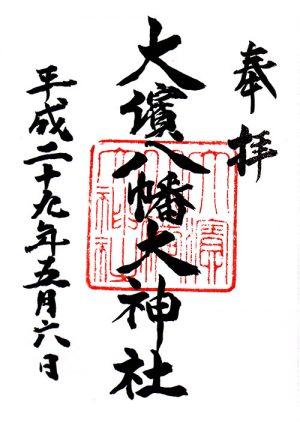 奉拝
大濱八幡大神社
平成二十九年五月六日